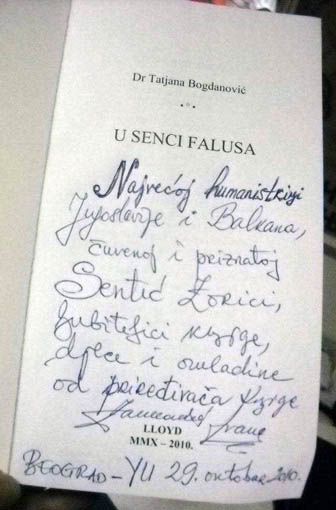 Dr Tatjana Bogdanović
U SENCI FALUSA
Najvećoj humanistkinji
Jugoslavije i Balkana,
čuvenoj i priznatoj
Sentić Zorici,
ljubiteljici knjige,
djece i omladine
od priređivača knjige
LLOYD
MMX – 2010.
BEOGRAD – YU 29. oktobar 2010.